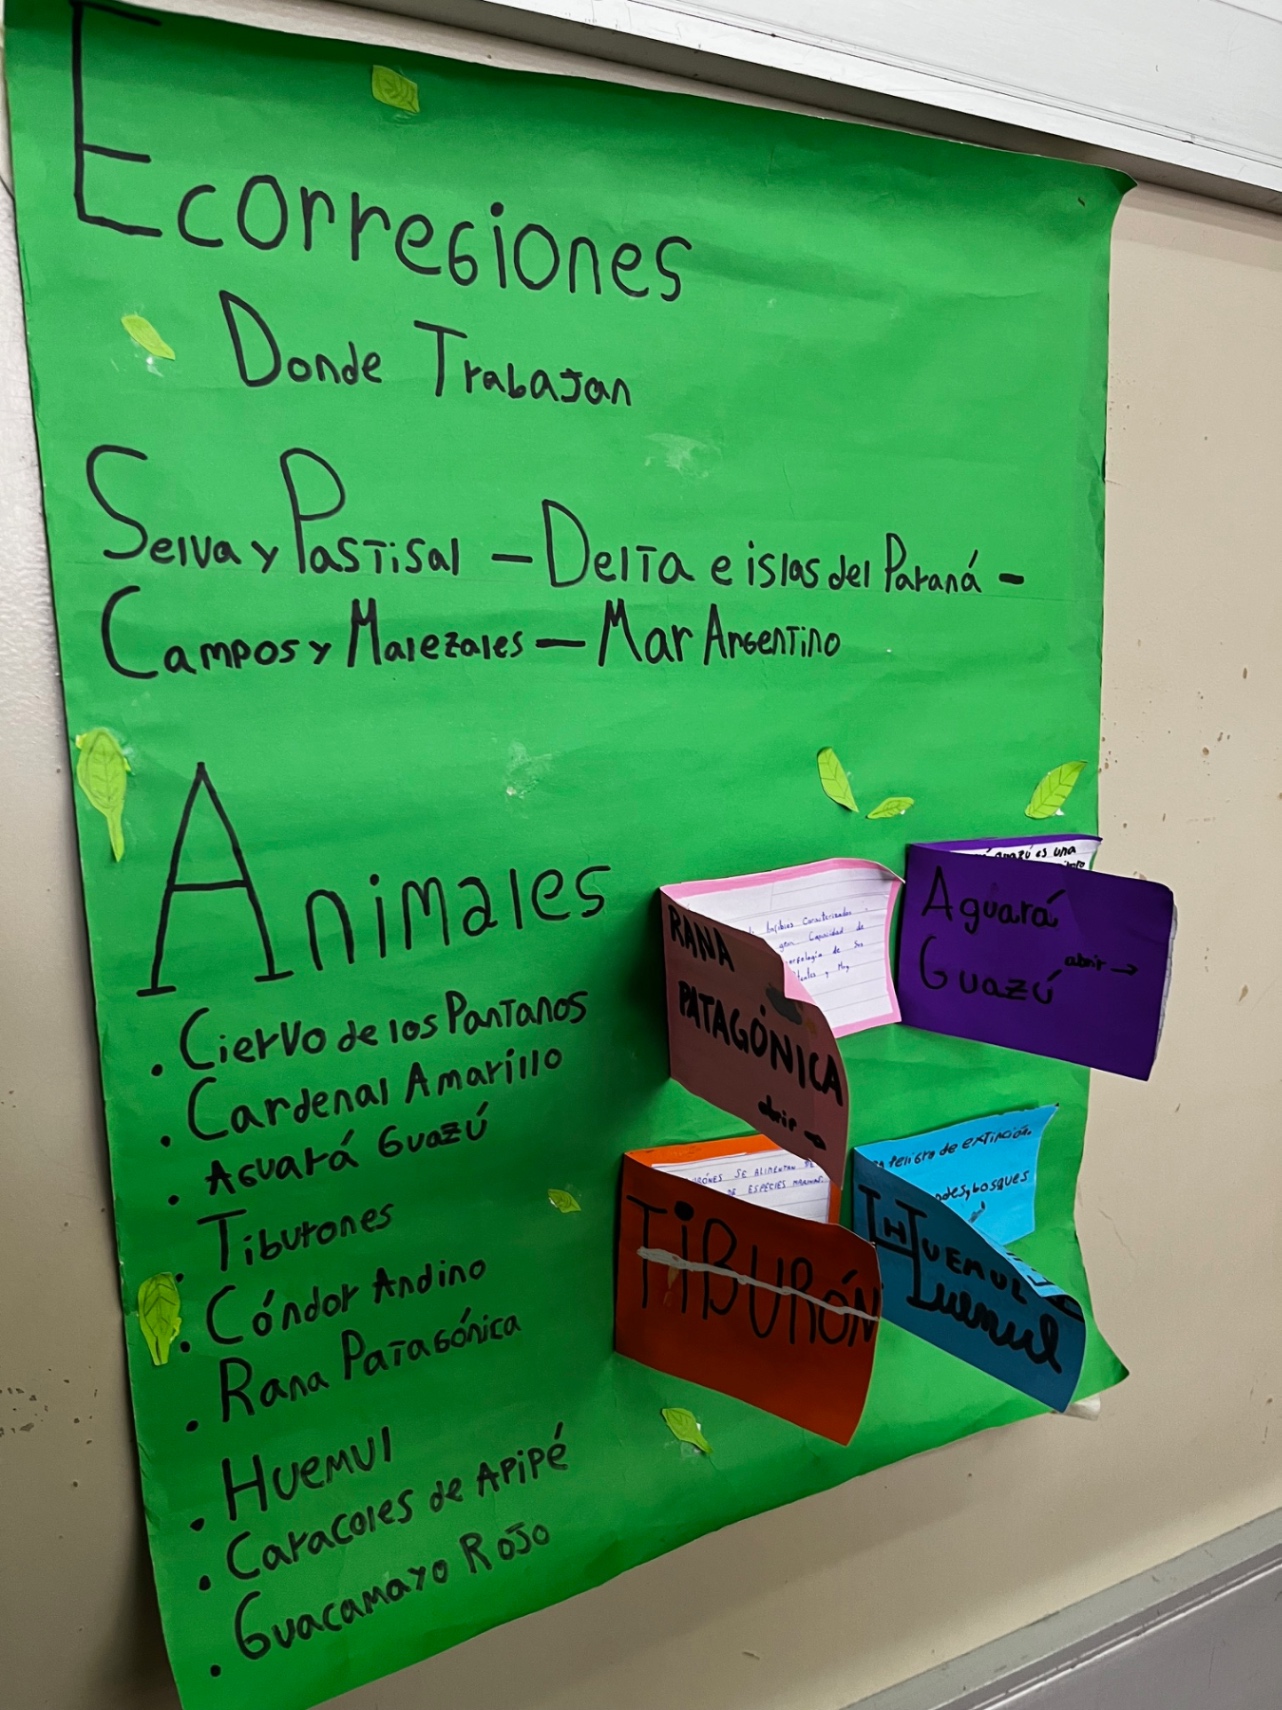 Ecorregiones
Donde Trabajan
Selva y Pastisal – Delta e islas del Paraná –
Campos y Malezales – Mar Argentino
Animales
. Ciervo de los Pantanos
. Cardenal Amarillo
. Aguará Guazú
. Tiburones
. Cóndor Andino
. Rana Patagónica
. Huemul
. Caracoles de Apipé
. Guacamayo Rojo
RANA
PATAGÓNICA
abrir →
Caracterizados
gran Capacidad de
morfología de Sus
y Muy
es una
Aguará
Guazú
abrir →
SE ALIMENTAN DE
DE ESPECIES MARINAS
TIBURÓN
peligro de extinción.
bosques
HUEMUL
Huemul